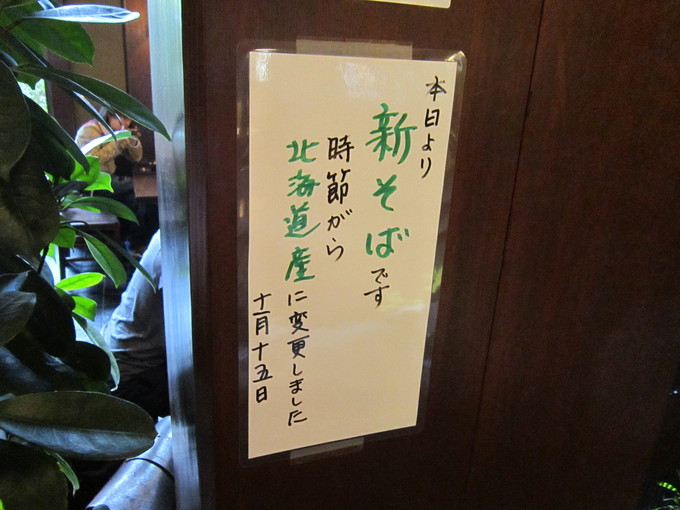 本日より
新そばです
時節がら
北海道産に変更しました
十一月十五日